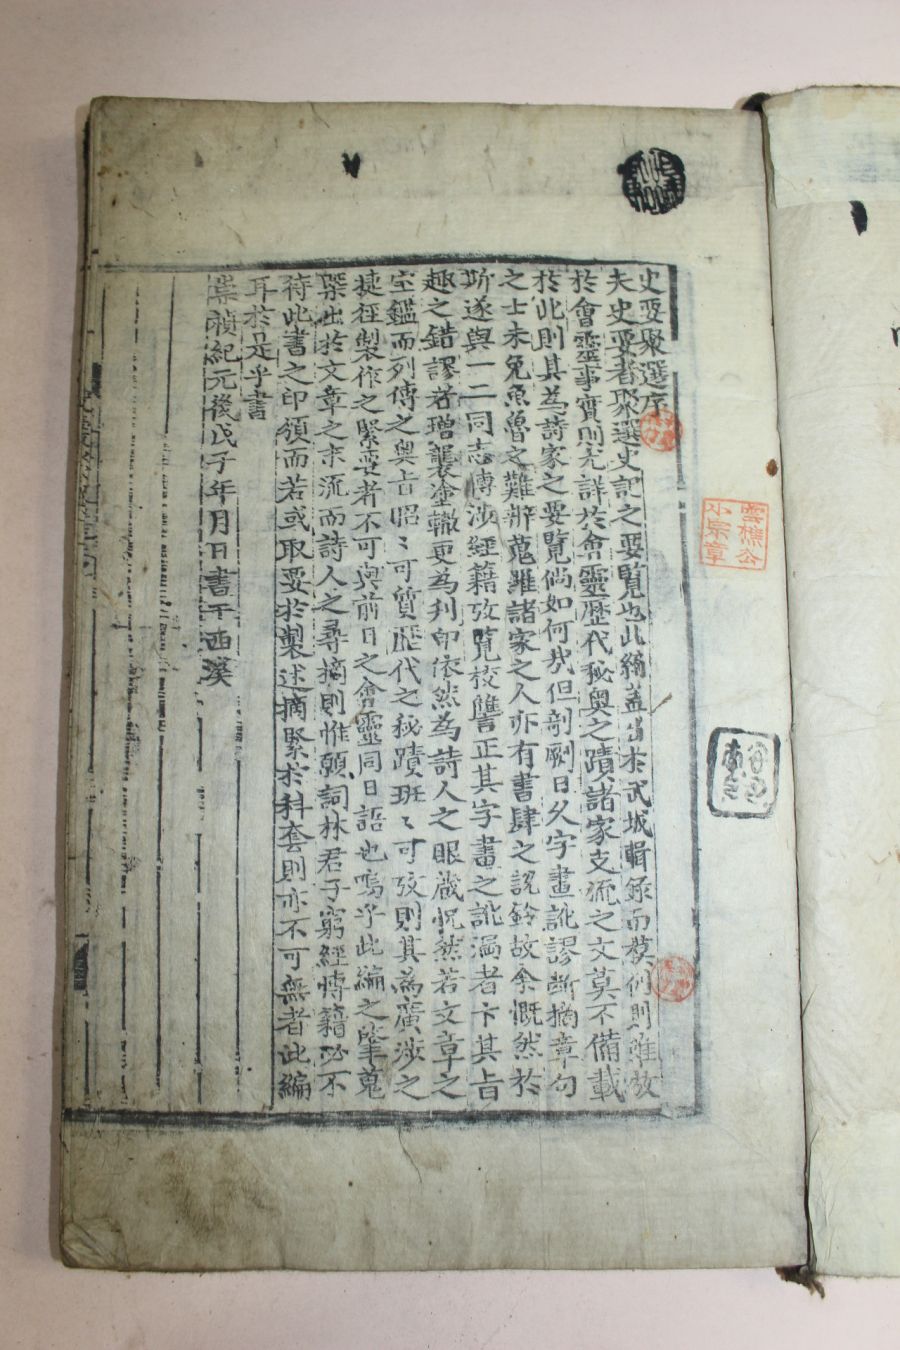 史要聚選序
夫史要者聚選史記之要覽也此編盖出於武城輯錄而模倣則雖放
於會靈事實則尤詳於會靈歷代秘奧之蹟諸家支流之文莫不備載
於此則其為詩家之要覽倘如何哉但剞劂日久字畫訛謬斷摘章句
之士未免魚魯之難辨蒐羅諸家之人亦有書肆之說鈴故余慨然於
斯遂與一二同志博涉經籍攷覽校讐正其字畫之訛漏者卞其旨
趣之錯謬者增襲塗轍更為刋印依然為詩人之眼藏怳然若文章之
宝鑑而列傳之奧旨昭〻可質歷代之秘蹟班〻可攷則其為廣涉之
捷徑製作之緊要者不可與前日之會靈同日語也嗚乎此編之肇蒐
槩出於文章之末流而詩人之尋摘則惟願詞林君子窮經博籍必不
待此書之印頒而若或取要於製述摘緊於科套則亦不可無者此編
耳於是乎書
崇禎紀元後戊子年月日書于西溪
雲樵公
小宗章